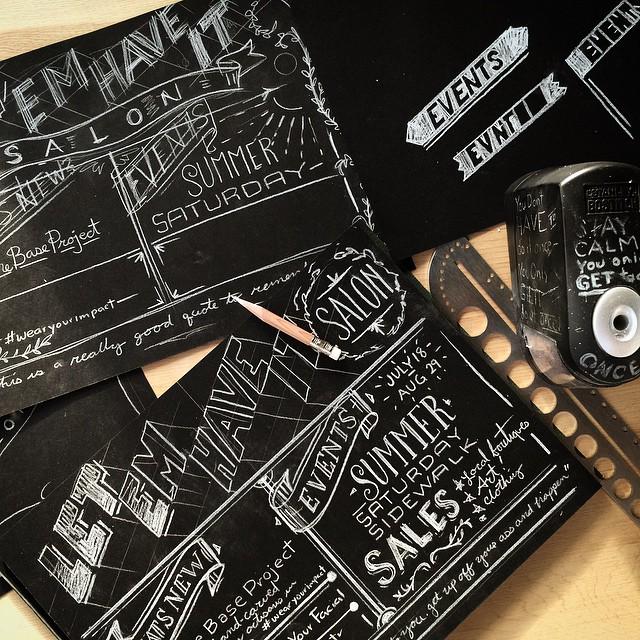 'EM HAVE IT
SALON
NEW
EVENTS
SUMMER
SATURDAY
Base Project
#wearyourimpact
this is a really good quote to remem
EVENTS
EVNT
STAY
CALM
YOU ONLY
GET
ONCE
YOU DON'T
HAVE
YOU ONLY
SALON
LET
'EM
HAVE IT
EVENTS
JULY 18-
AUG 29
SUMMER
SATURDAY
SIDEWALK
SALES
*local boutiques
*Art
*clothing
NEW!
e Base Project
and-carved
#wearyourimpact
Your Facial
you get up off your ass and happen"